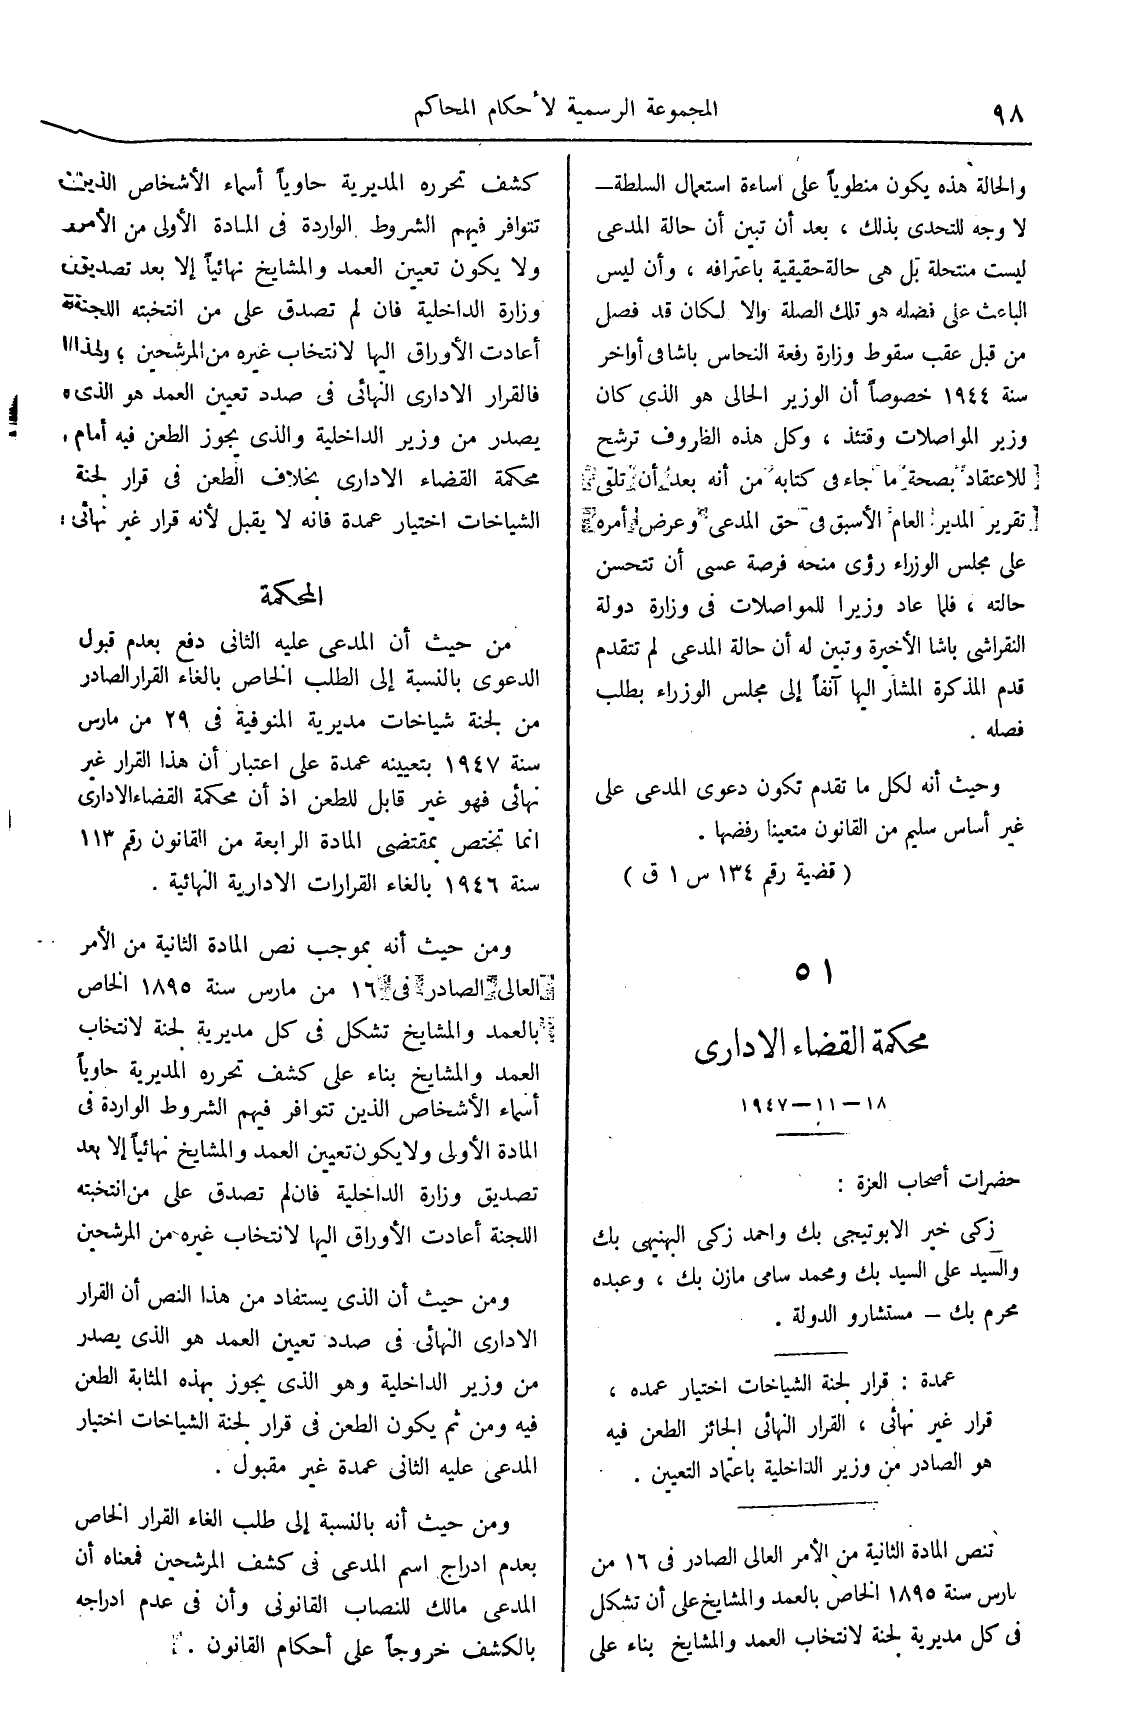 ٩٨
المجموعة الرسمية لأحكام المحاكم
والحالة هذه يكون منطوياً على اساءة استعمال السلطة—
لا وجه للتحدى بذلك ، بعد أن تبين أن حالة المدعى
ليست منتحلة بل هى حالة حقيقية باعترافه ، وأن ليس
الباعث على فضله هو تلك الصلة والا لكان قد فصل
من قبل عقب سقوط وزارة رفعة النحاس باشا فى أواخر
سنة ١٩٤٤ خصوصاً أن الوزير الحالى هو الذى كان
وزير المواصلات وقتئذ ، وكل هذه الظروف ترشح
للاعتقاد بصحة ما جاء فى كتابه من أنه بعد أن تلقى
تقرير المدير العام الأسبق فى حق المدعى وعرض أمره
على مجلس الوزراء رؤى منحه فرصة عسى أن تتحسن
حالته ، فلما عاد وزيرا للمواصلات فى وزارة دولة
النقراشى باشا الأخيرة وتبين له أن حالة المدعى لم تتقدم
قدم المذكرة المشار اليها آنفاً إلى مجلس الوزراء بطلب
فصله .
وحيث أنه لكل ما تقدم تكون دعوى المدعى على
غير أساس سليم من القانون متعينا رفضها .
( قضية رقم ١٣٤ س ١ ق )
٥١
محكمة القضاء الادارى
١٨—١١—١٩٤٧
حضرات أصحاب العزة :
زكى خير الابوتيجى بك واحمد زكى البهنيهى بك
والسيد على السيد بك ومحمد سامى مازن بك ، وعبده
محرم بك — مستشارو الدولة .
عمدة : قرار لجنة الشياخات اختيار عمده ،
قرار غير نهائى ، القرار النهائى الجائز الطعن فيه
هو الصادر من وزير الداخلية باعتماد التعيين .
تنص المادة الثانية من الأمر العالى الصادر فى ١٦ من
مارس سنة ١٨٩٥ الخاص بالعمد والمشايخ على أن تشكل
فى كل مديرية لجنة لانتخاب العمد والمشايخ بناء على
كشف تحرره المديرية حاوياً أسماء الأشخاص الذين
تتوافر فيهم الشروط الواردة فى المادة الأولى من الأمر
ولا يكون تعيين العمد والمشايخ نهائياً إلا بعد تصديق
وزارة الداخلية فان لم تصدق على من انتخبته اللجنة
أعادت الأوراق اليها لانتخاب غيره من المرشحين ؛ ولهذا
فالقرار الادارى النهائى فى صدد تعيين العمد هو الذى
يصدر من وزير الداخلية والذى يجوز الطعن فيه أمام
محكمة القضاء الادارى بخلاف الطعن فى قرار لجنة
الشياخات اختيار عمدة فانه لا يقبل لأنه قرار غير نهائى :
المحكمة
من حيث أن المدعى عليه الثانى دفع بعدم قبول
الدعوى بالنسبة إلى الطلب الخاص بالغاء القرار الصادر
من لجنة شياخات مديرية المنوفية فى ٢٩ من مارس
سنة ١٩٤٧ بتعيينه عمدة على اعتبار أن هذا القرار غير
نهائى فهو غير قابل للطعن اذ أن محكمة القضاء الادارى
انما تختص بمقتضى المادة الرابعة من القانون رقم ١١٣
سنة ١٩٤٦ بالغاء القرارات الادارية النهائية .
ومن حيث أنه بموجب نص المادة الثانية من الأمر
العالى الصادر فى ١٦ من مارس سنة ١٨٩٥ الخاص
بالعمد والمشايخ تشكل فى كل مديرية لجنة لانتخاب
العمد والمشايخ بناء على كشف تحرره المديرية حاوياً
أسماء الأشخاص الذين تتوافر فيهم الشروط الواردة فى
المادة الأولى ولا يكون تعيين العمد والمشايخ نهائياً إلا بعد
تصديق وزارة الداخلية فان لم تصدق على من انتخبته
اللجنة أعادت الأوراق اليها لانتخاب غيره من المرشحين
ومن حيث أن الذى يستفاد من هذا النص أن القرار
الادارى النهائى فى صدد تعيين العمد هو الذى يصدر
من وزير الداخلية وهو الذى يجوز بهذه المثابة الطعن
فيه ومن ثم يكون الطعن فى قرار لجنة الشياخات اختيار
المدعى عليه الثانى عمدة غير مقبول .
ومن حيث أنه بالنسبة إلى طلب الغاء القرار الخاص
بعدم ادراج اسم المدعى فى كشف المرشحين فمعناه أن
المدعى مالك للنصاب القانونى وأن فى عدم ادراجه
بالكشف خروجاً على أحكام القانون .